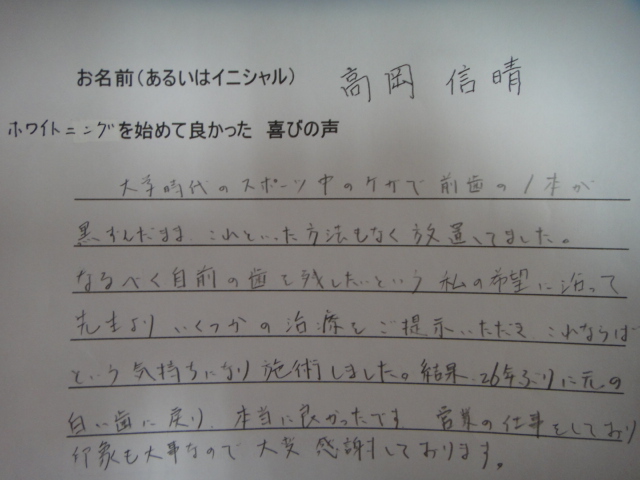 お名前(あるいはイニシャル) 高岡 信晴
ホワイトニングを始めて良かった 喜びの声
大学時代のスポーツ中のケガで前歯の1本が
黒ずんだまま、これといった方法もなく放置してました。
なるべく自前の歯を残したいという私の希望に沿って
先生よりいくつかの治療をご提示いただき、これならば
という気持ちになり施術しました。結果、26年ぶりに元の
白い歯に戻り、本当に良かったです 営業の仕事をしており
印象も大事なので大変感謝しております。